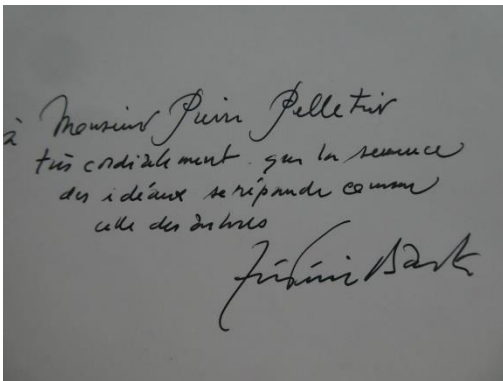 à Monsieur Pierre Pelletier
très cordialement que la semence
des idéaux se répande comme
celle des arbres
Frédéric Back